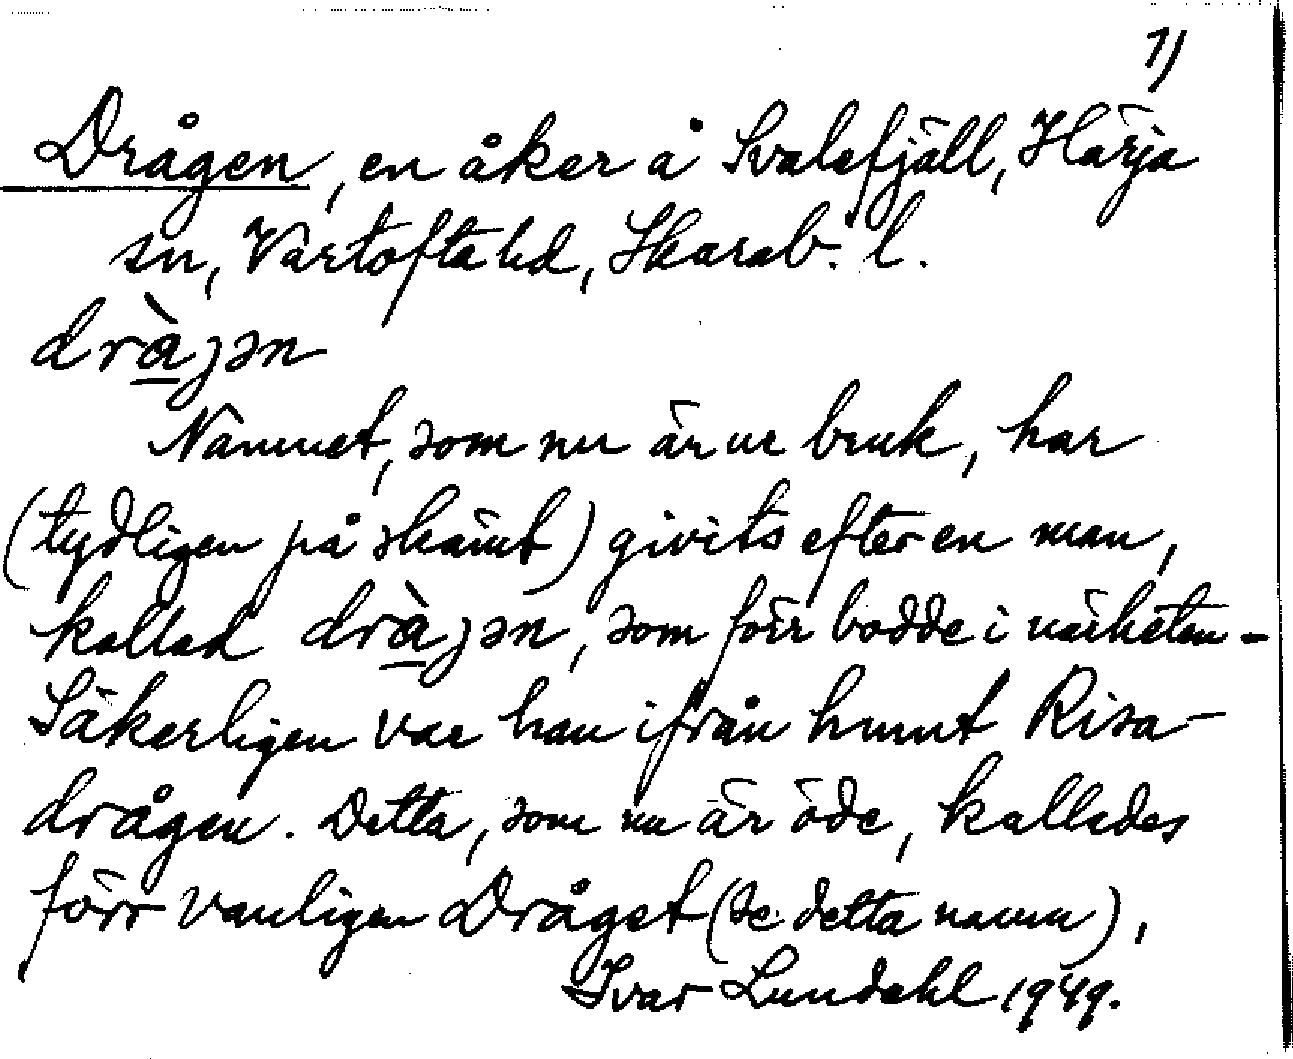 1)
Drågen, en åker å Svalefjäll, Härja
sn, Vartofta hd, Skarab. l.
drà̱jən
Namnet, som nu är ur bruk, har
(tydligen på skämt) givits efter en man,
kallad drà̱jən, som förr bodde i närheten -
Säkerligen var han ifrån hmnt Risa-
drågen. Detta, som nu är öde, kallades
förr vanligen Dråget (se detta namn),
Ivar Lundahl 1949.